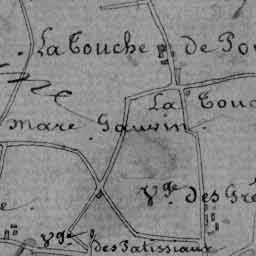 La Touche de Po
La Touc
Mare Gauvin
Vge des Gré
e.
Vge des Patissiaux